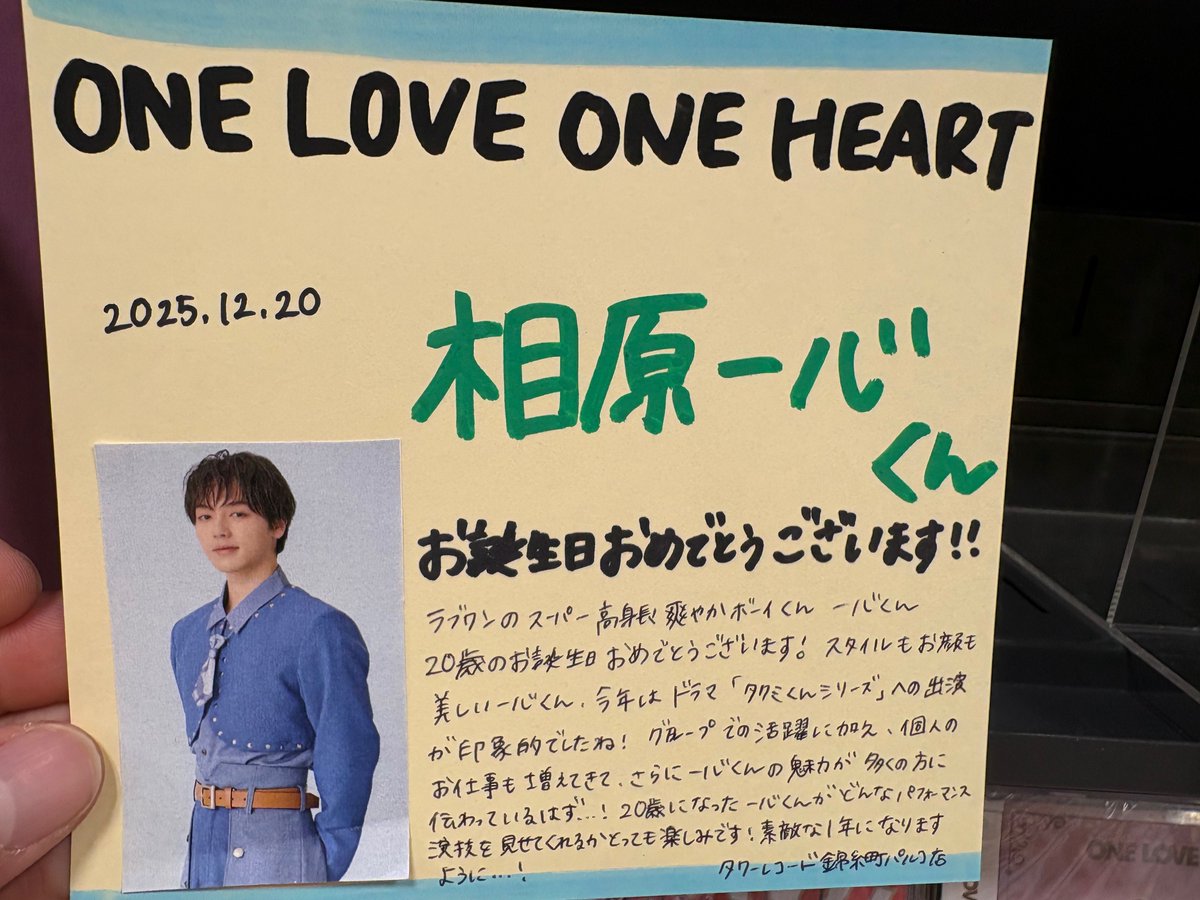 ONE LOVE ONE HEART
2025.12.20
相原一心
くん
お誕生日おめでとうございます!!
ラブワンのスーパー高身長爽やかボーイくん 一心くん
20歳のお誕生日おめでとうございます! スタイルもお顔も
美しい一心くん、今年はドラマ「タクミくんシリーズ」への出演
が印象的でしたね! グループでの活躍に加え、個人の
お仕事も増えてきて、さらに一心くんの魅力が多くの方に
伝わっているはず…! 20歳になった一心くんがどんなパフォーマンス
演技を見せてくれるかとっても楽しみです! 素敵な1年になります
ように…!
タワーレコード錦糸町パルコ店
ONE LOVE